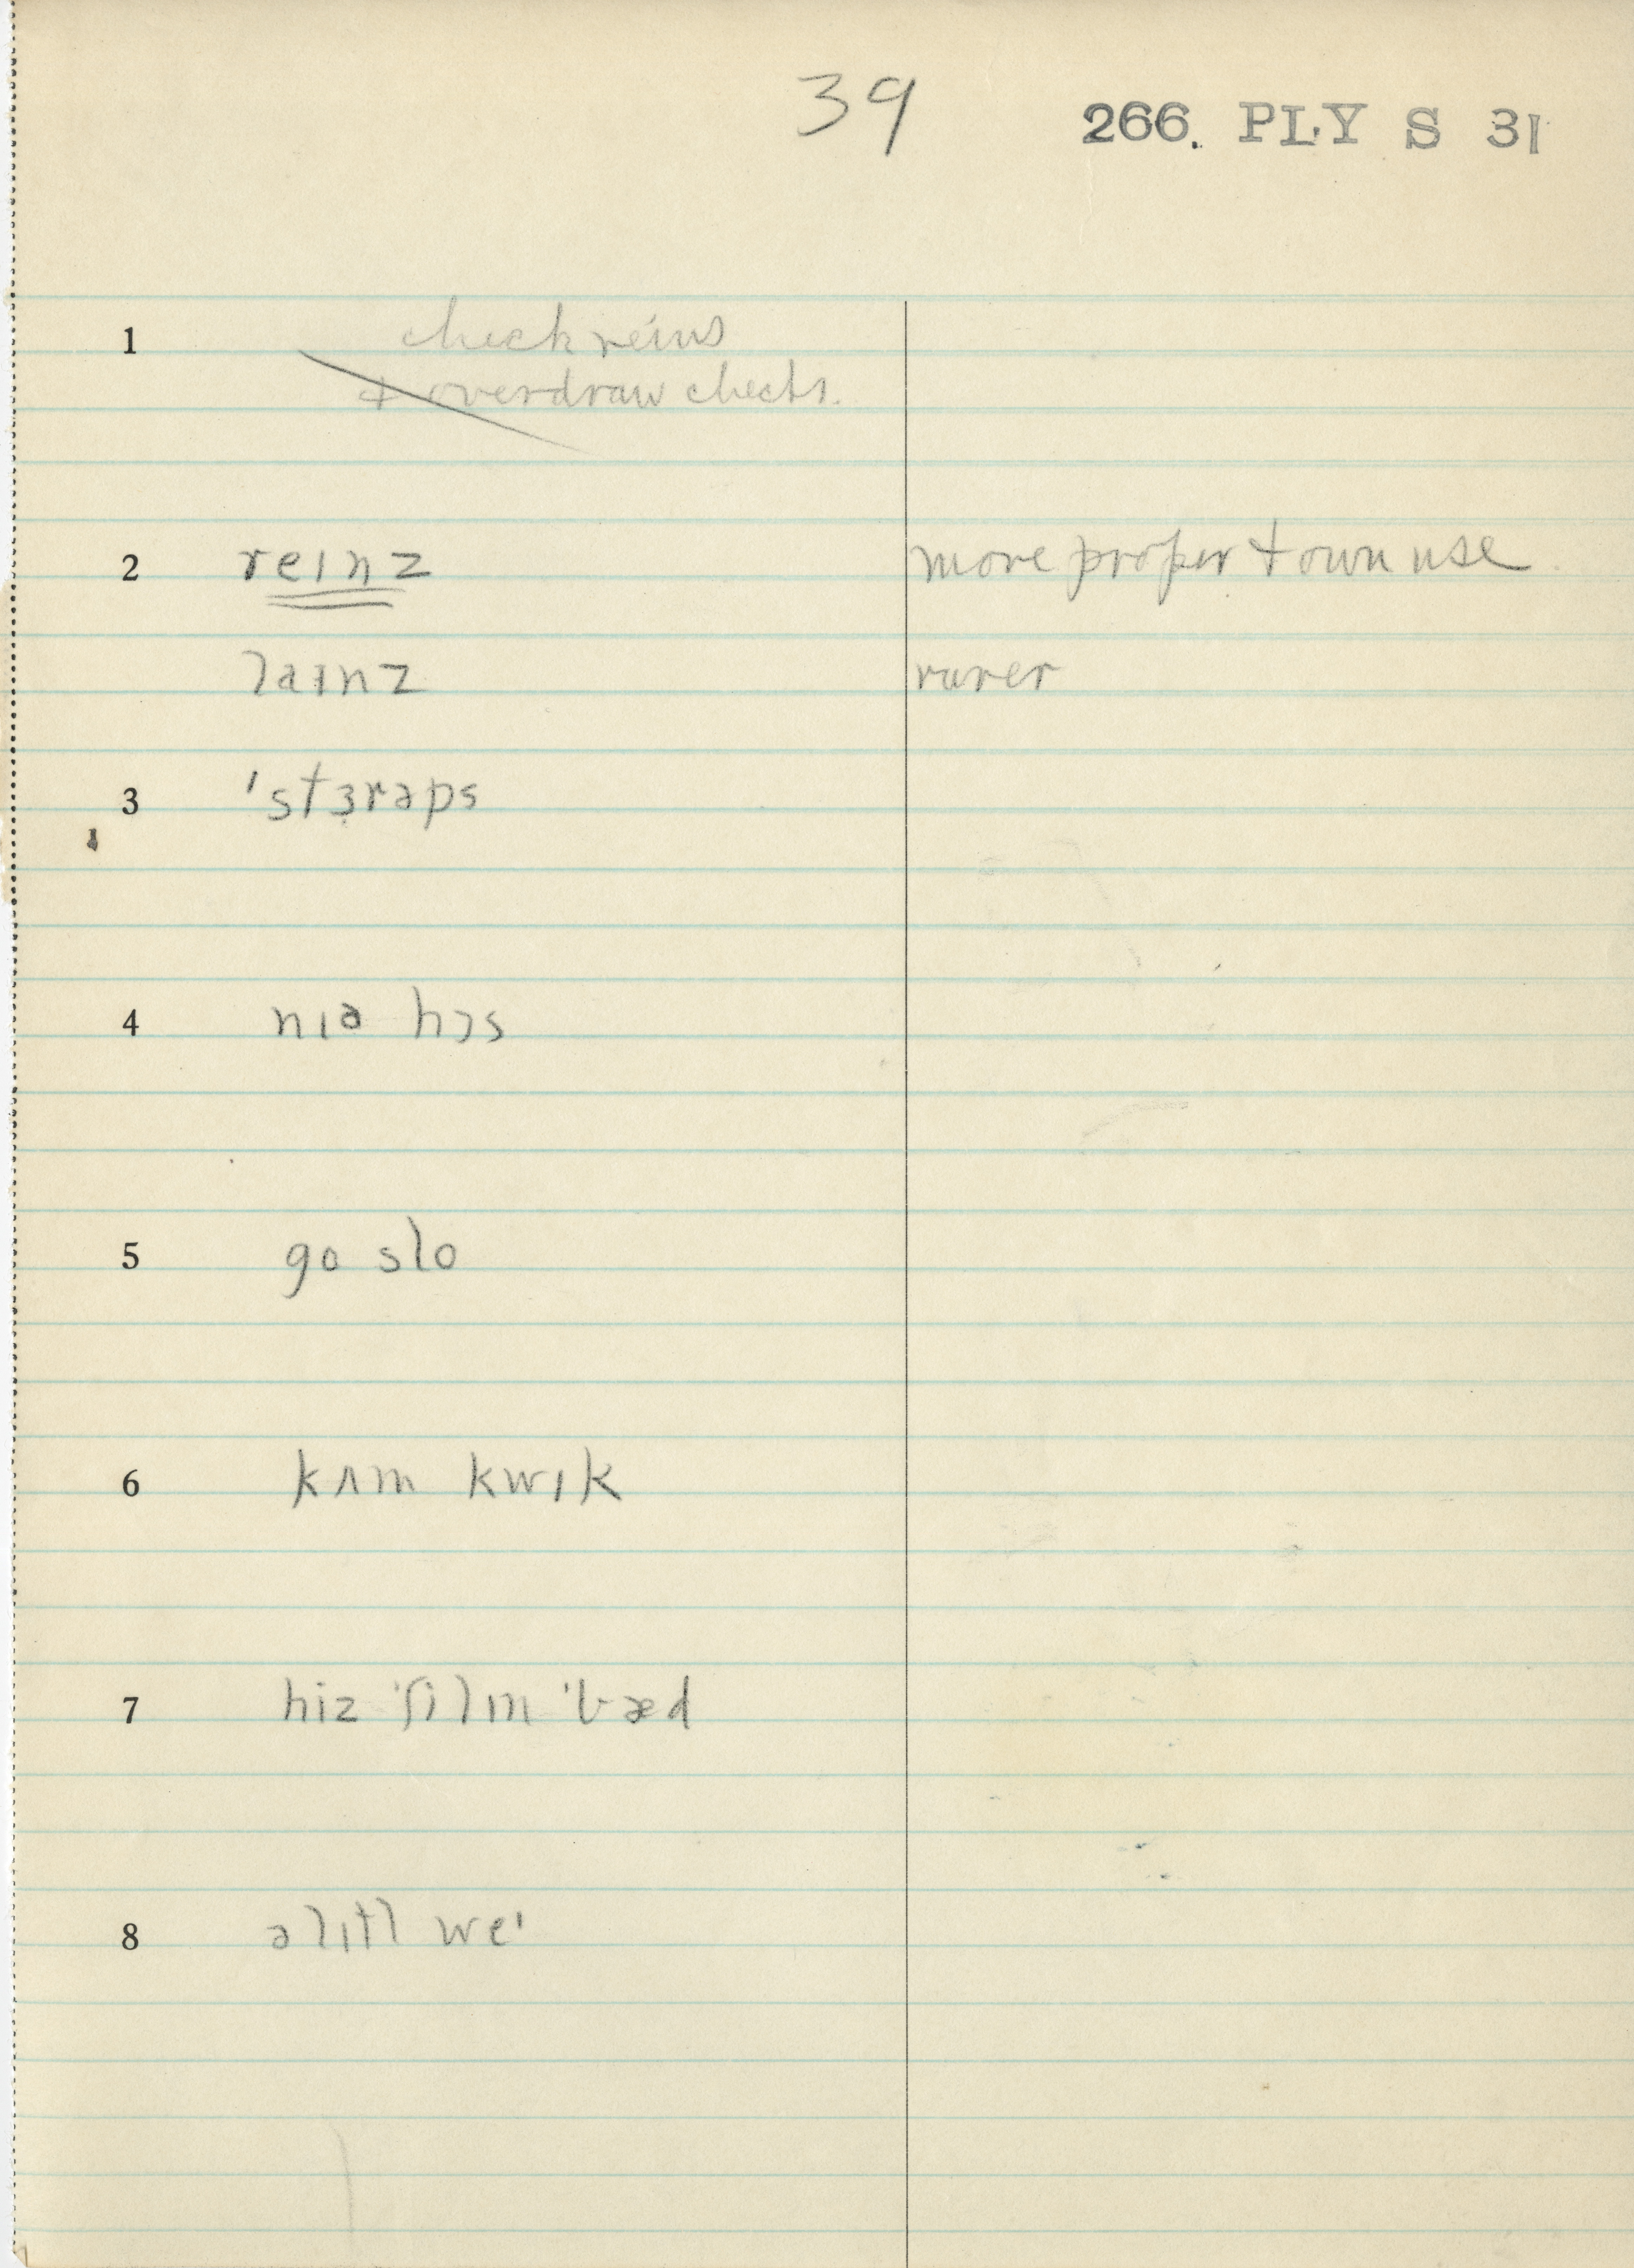 39 266. PLY S 31
1 check reins
& overdraw checks.
2 reɪnz more proper & own use
laɪnz rarer
3 'stɜrəps
4 nɪə hɔs
5 go slo
6 kʌm kwɪk
7 hiz 'filɪn 'bæd
8 ə lɪtl we'